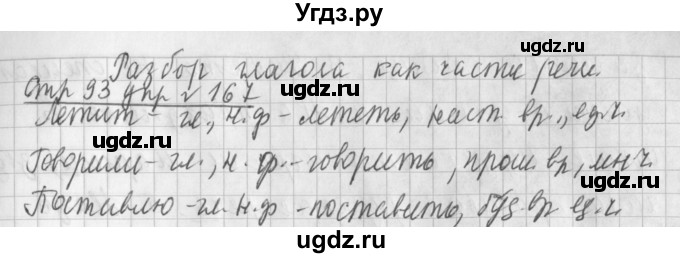 Угдз.ру
Разбор глагола как части речи.
Стр 93 упр № 167
Летит - гл., н.ф - лететь, наст вр., ед.ч.
Говорили - гл., н. ф. - говорить, прош. вр, мн.ч.
Поставлю - гл. н.ф - поставить, буд. вр ед.ч.
ugdz.ru
ugdz.ru
ugdz.ru
ugdz.ru
ugdz.ru
ugdz.ru
ugdz.ru
ugdz.ru